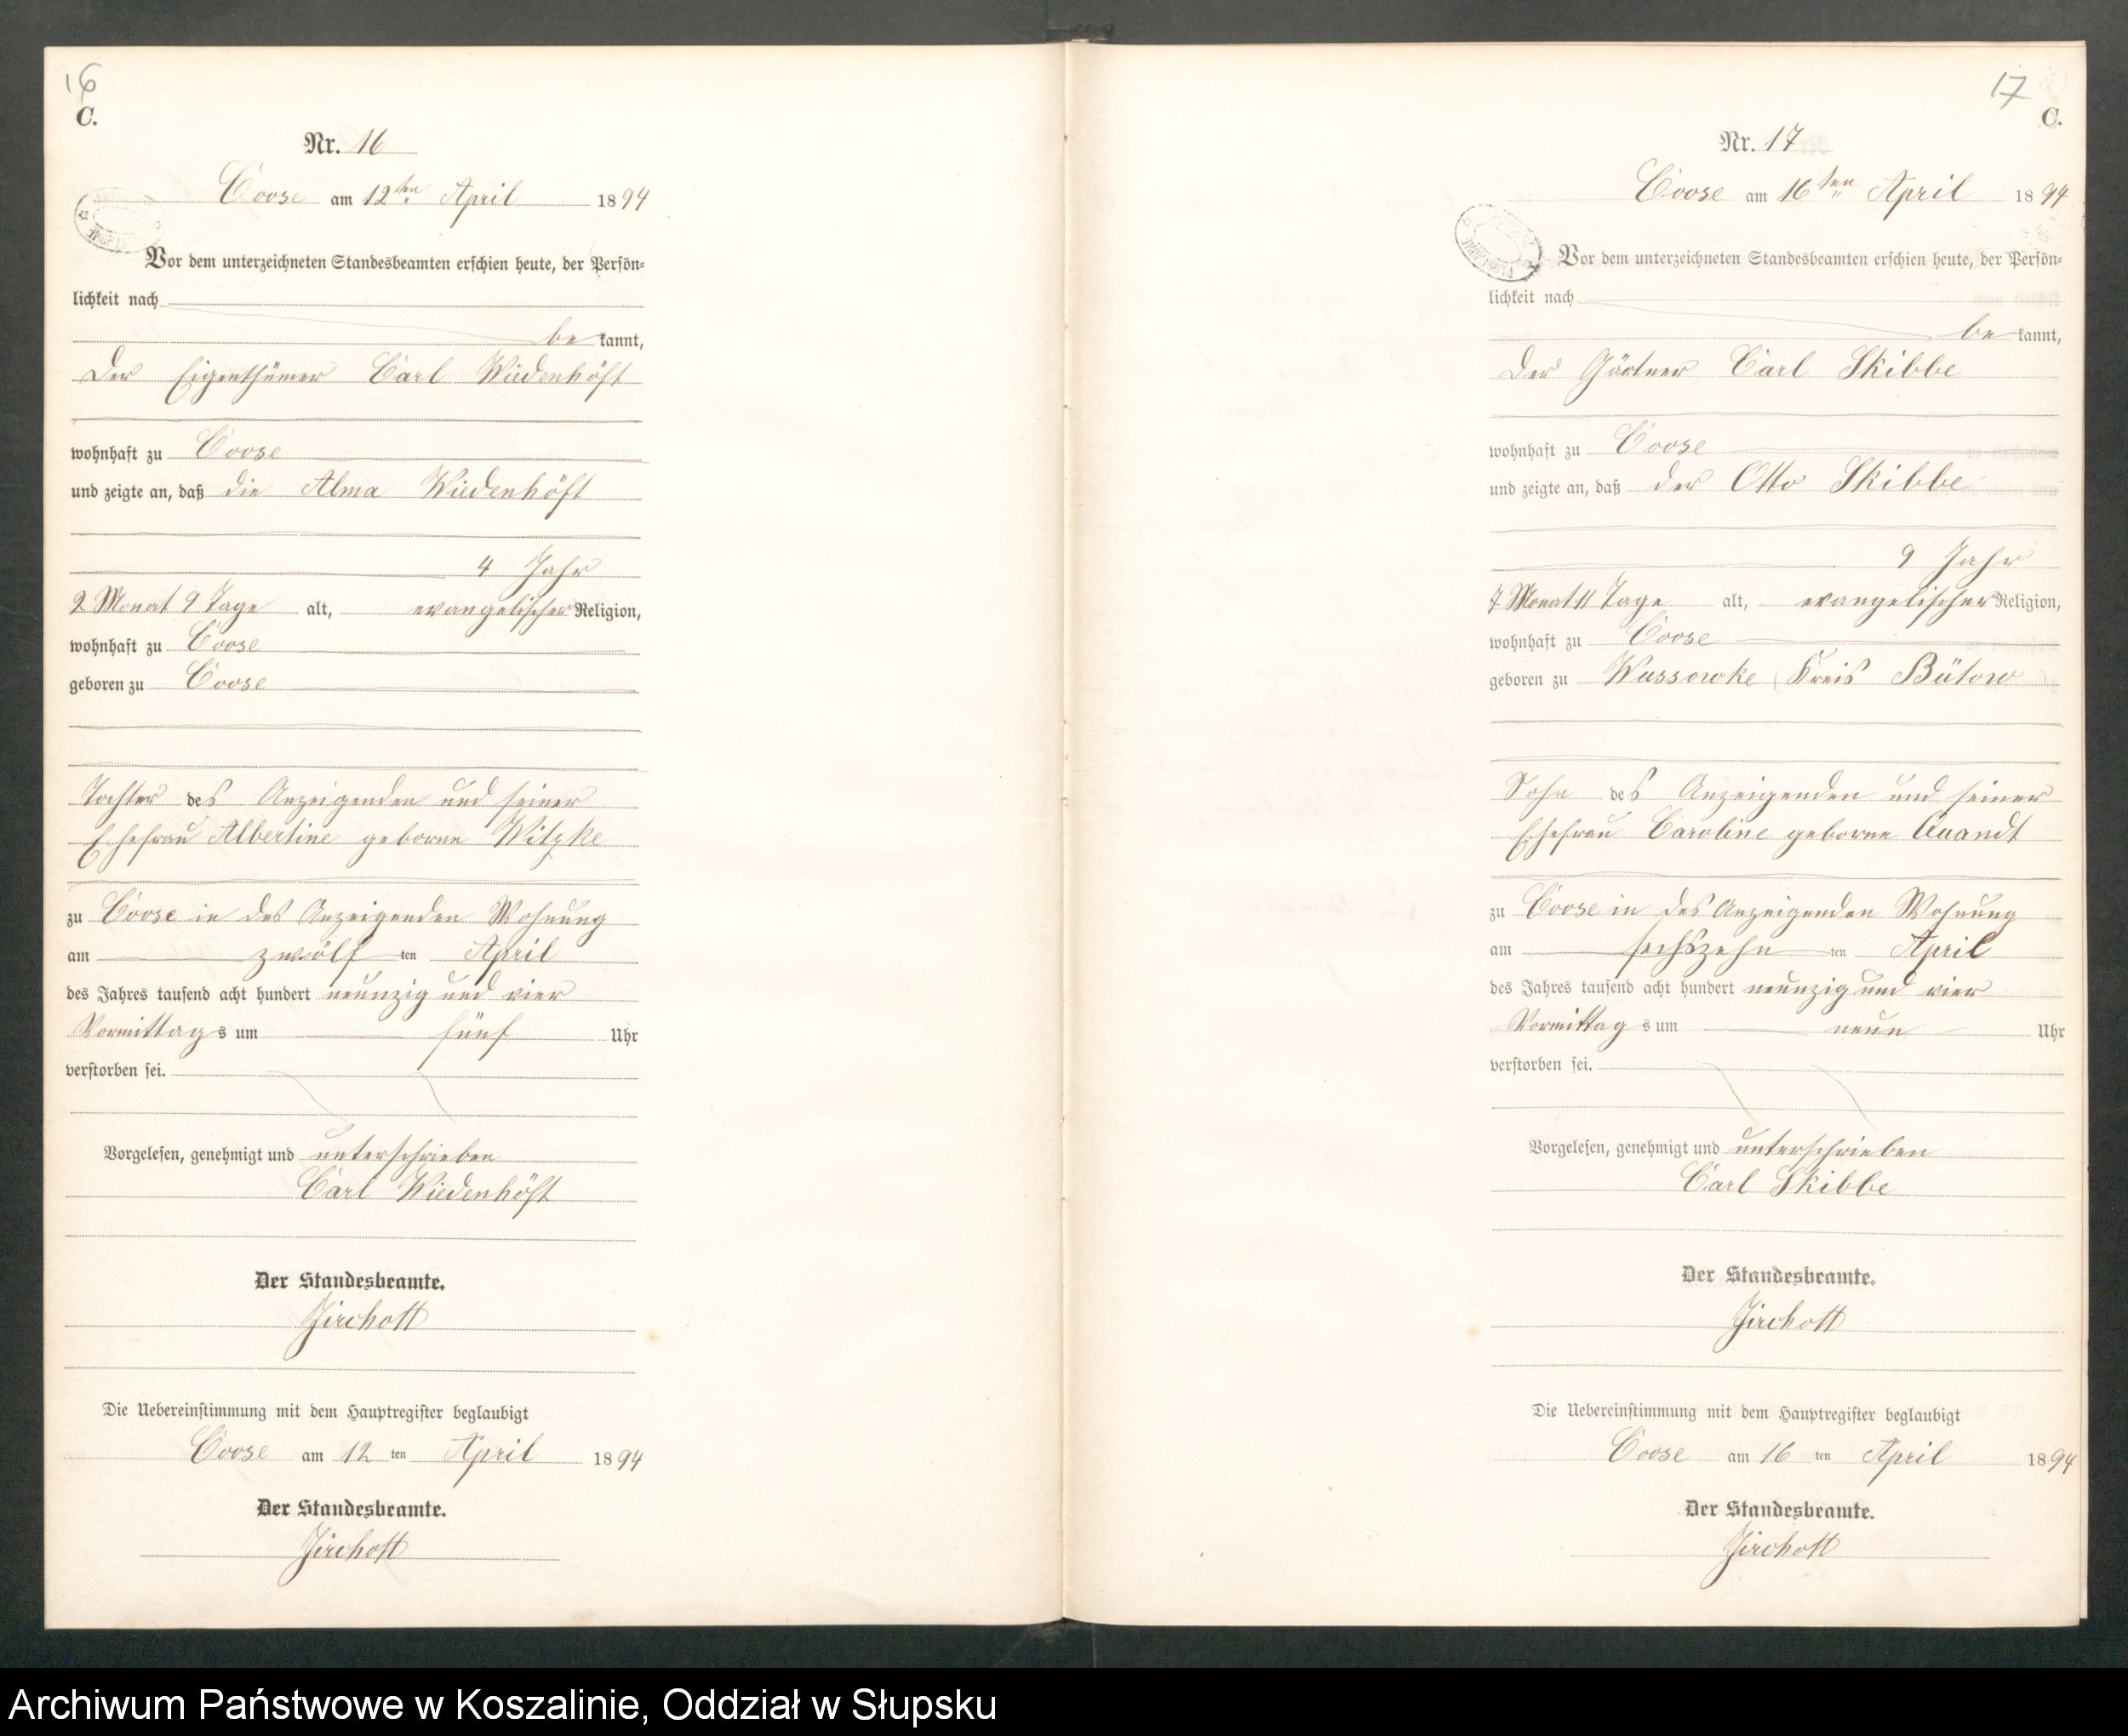 16
C.
Nr. 16
Coose am 12ten April 1894
Vor dem unterzeichneten Standesbeamten erschien heute, der Persön-
lichkeit nach
be kannt,
Der Eigenthümer Carl Wiedenhöft
wohnhaft zu Coose
und zeigte an, daß die Alma Wiedenhöft
4 Jahr
2 Monat 9 Tage alt, evangelischer Religion,
wohnhaft zu Coose
geboren zu Coose
Tochter des Anzeigenden und seiner
Ehefrau Albertine geborne Witzke
zu Coose in des Anzeigenden Wohnung
am zwölf ten April
des Jahres tausend acht hundert neunzig und vier
Vormittags um fünf Uhr
verstorben sei.
Vorgelesen, genehmigt und unterschrieben
Carl Wiedenhöft
Der Standesbeamte.
Jirchott
Die Uebereinstimmung mit dem Hauptregister beglaubigt
Coose am 12 ten April 1894
Der Standesbeamte.
Jirchott
17
C.
Nr. 17
Coose am 16ten April 1894
Vor dem unterzeichneten Standesbeamten erschien heute, der Persön-
lichkeit nach
be kannt,
Der Gärtner Carl Skibbe
wohnhaft zu Coose
und zeigte an, daß der Otto Skibbe
9 Jahr
7 Monat 11 Tage alt, evangelischer Religion,
wohnhaft zu Coose
geboren zu Wussowke (Kreis Bütow)
Sohn des Anzeigenden und seiner
Ehefrau Caroline geborne Quandt
zu Coose in des Anzeigenden Wohnung
am sechszehn ten April
des Jahres tausend acht hundert neunzig und vier
Vormittags um neun Uhr
verstorben sei.
Vorgelesen, genehmigt und unterschrieben
Carl Skibbe
Der Standesbeamte.
Jirchott
Die Uebereinstimmung mit dem Hauptregister beglaubigt
Coose am 16 ten April 1894
Der Standesbeamte.
Jirchott
Archiwum Państwowe w Koszalinie, Oddział w Słupsku